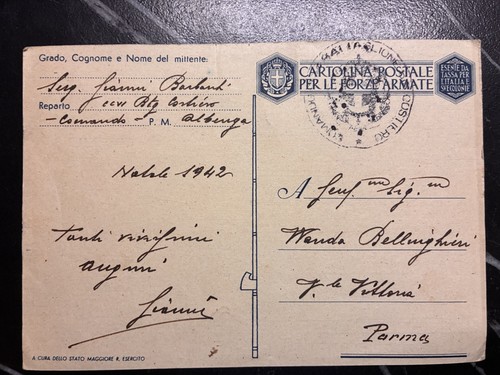 Grado, Cognome e Nome del mittente:
Serg. Gianni Barbanti
Reparto CCVI Btg Costiero
- Comando - P. M. Albenga
Natale 1942
Tanti vivissimi
auguri
Gianni
A CURA DELLO STATO MAGGIORE R. ESERCITO
CARTOLINA POSTALE
PER LE FORZE ARMATE
ESENTE DA
TASSA PER
L'ITALIA E
COSTIERO
A Gent.ma Sig.na
Wanda Bellinghieri
V.le Vittoria
Parma